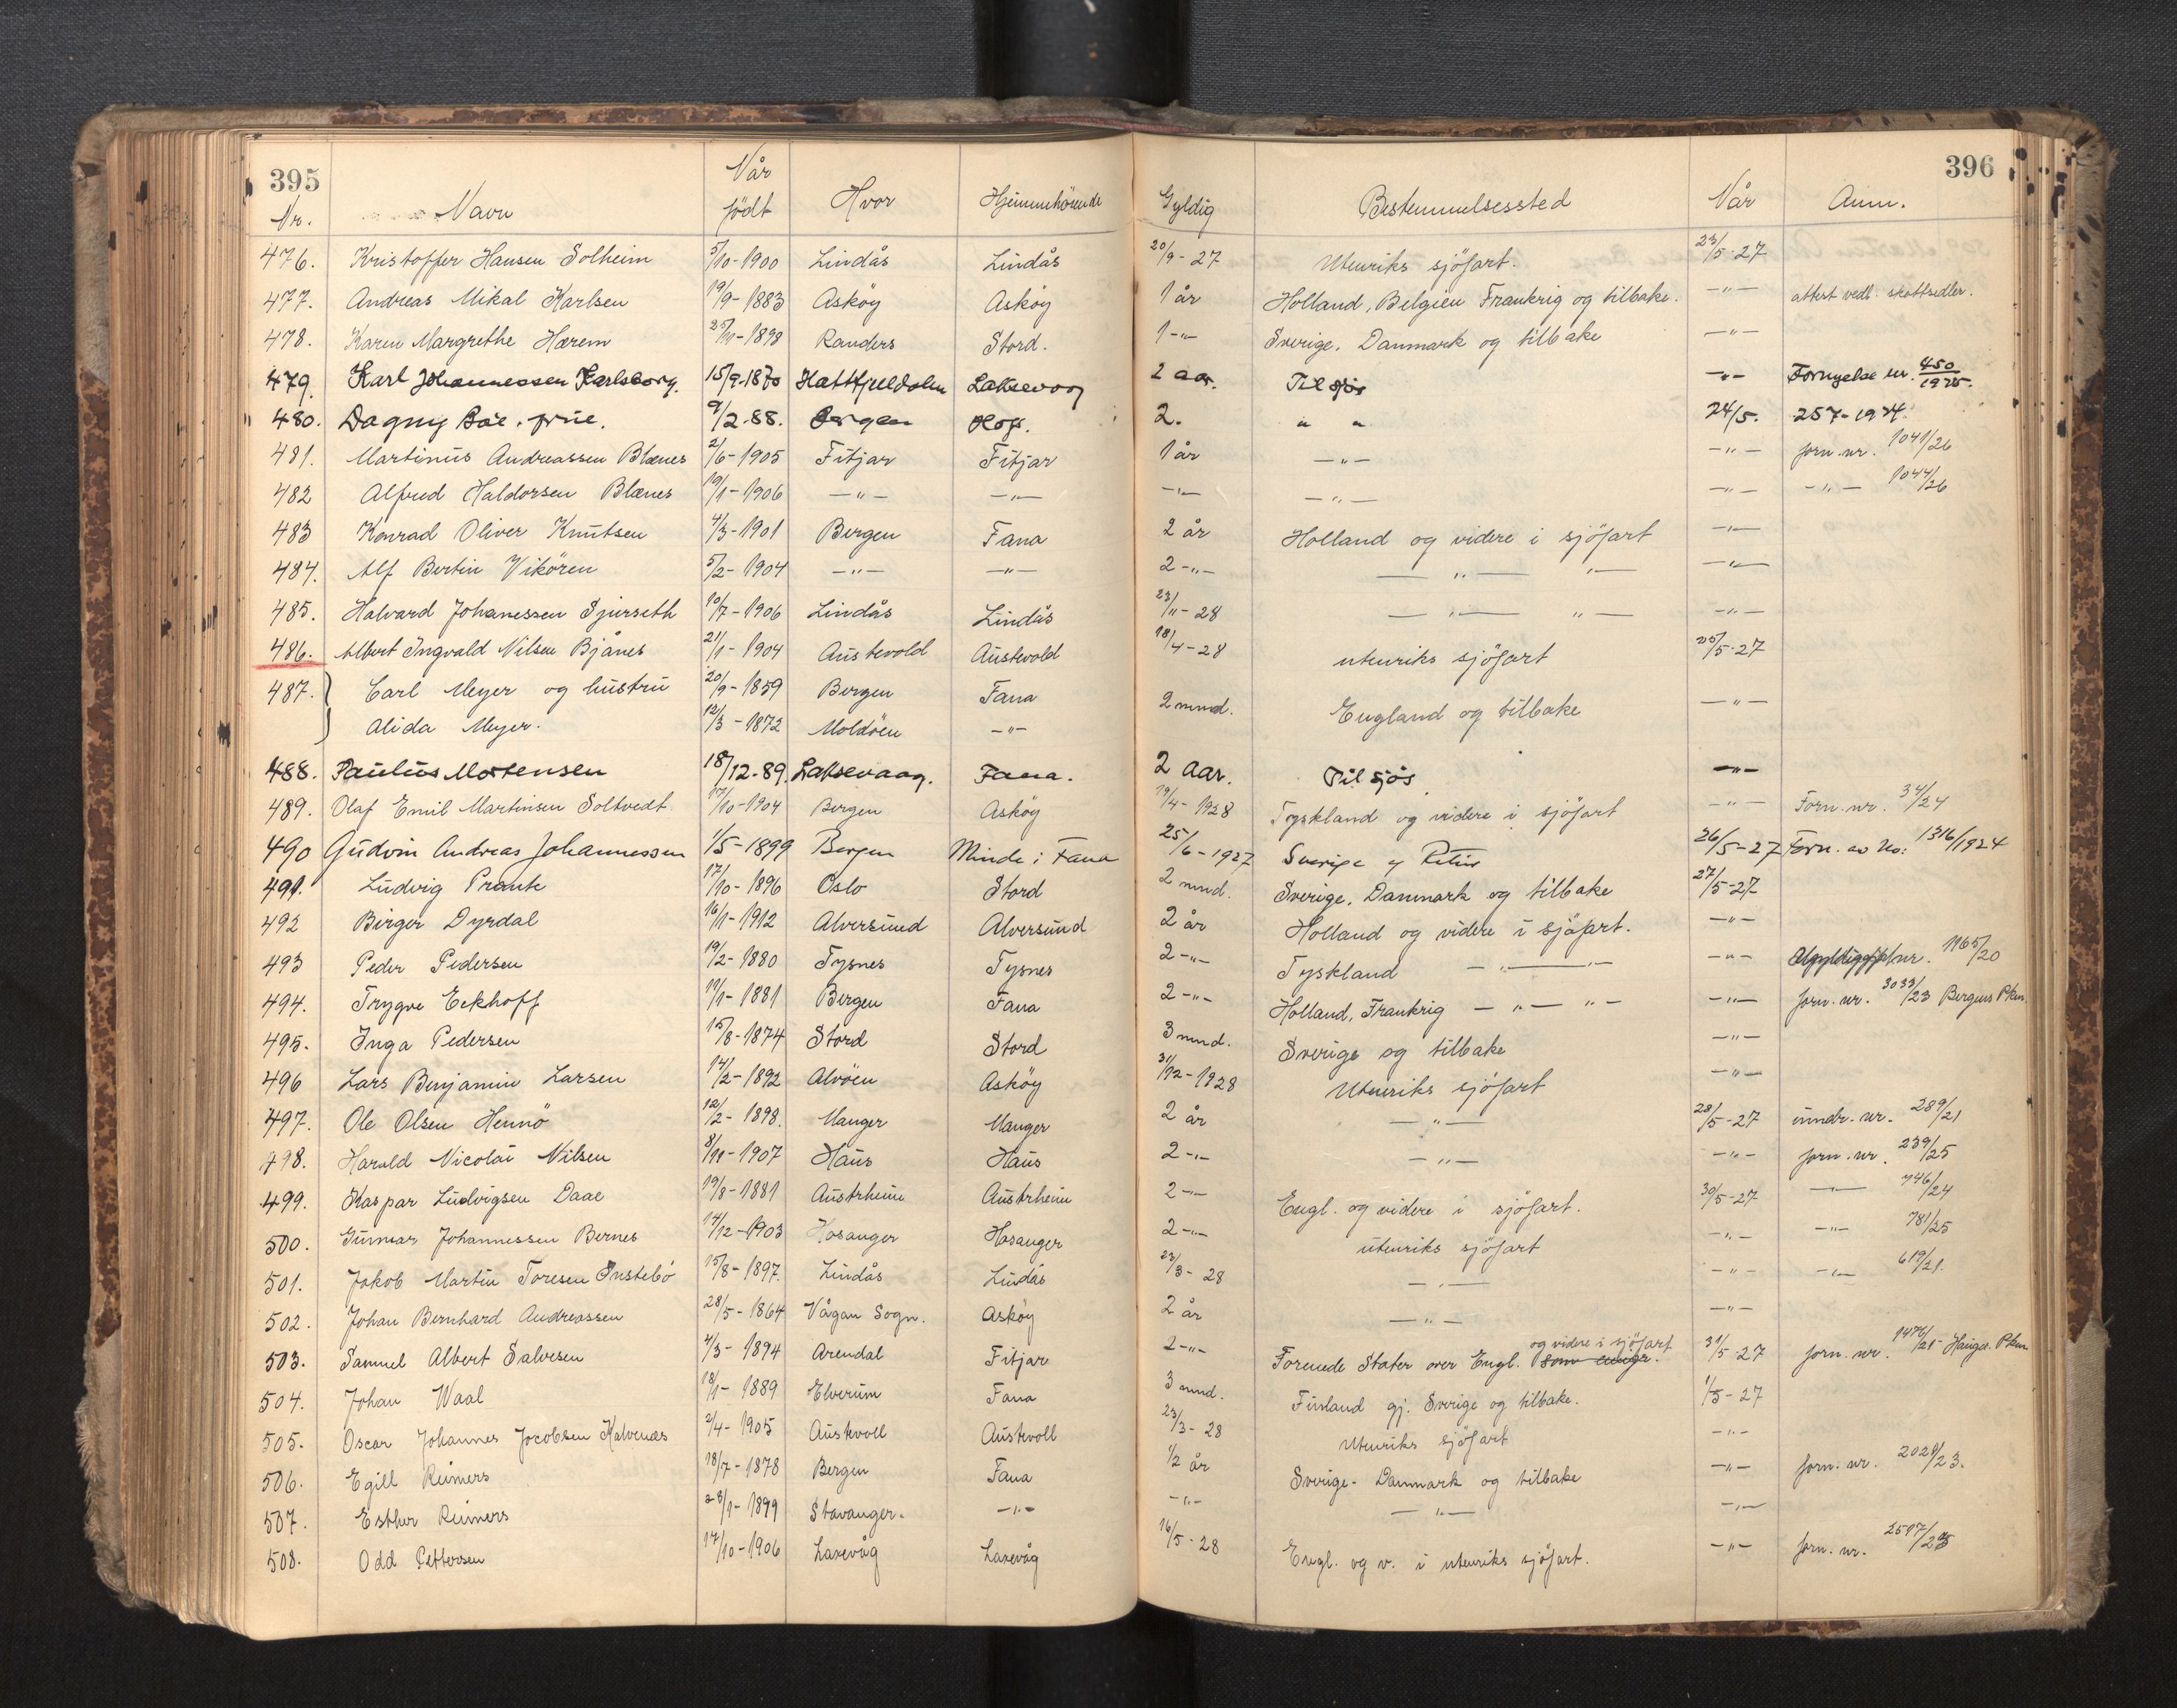 395
396
Nr. Navn Når födt Hvor Hjemmehörende Gyldig Bestemmelsessted Når Anm.
476. Kristoffer Hansen Solheim 5/10-1900 Lindås Lindås 20/9-27 Utenriks sjöfart. 23/5-27
477. Andreas Mikal Karlsen 19/9-1883 Asköy Asköy 1 år Holland, Belgien Frankrig og tilbake. -"- attest vedl. skattsedler.
478. Karen Margrethe Hærem 25/11-1898 Randers Stord. 1-"- Sverige, Danmark og tilbake -"-
479. Karl Johannessen Karlsborg. 15/9-1870 Hattfjeldalen Laksevaag 2 aar. Til sjös -"- Fornyelse nr. 450/1925.
480. Dagny Böe, frue. 9/2-88. Bergen Hop. 2. " " 24/5. 257-1924.
481. Martinus Andreassen Blænes 2/6-1905 Fitjar Fitjar 1 år -"- -"- forn. nr. 1041/26
482 Alfred Haldorsen Blænes 19/1-1906 -"- -"- -"- -"- -"- -"- 1044/26
483 Konrad Oliver Knutsen 4/3-1901 Bergen Fana 2 år Holland og videre i sjöfart -"-
484. Alf Bertin Vikören 5/2-1904 -"- -"- 2-"- -"- "- -"-
485. Halvard Johanessen Sjurseth 10/7-1906 Lindås Lindås 23/11-28 -"- "- -"-
486. Albert Ingvald Nilsen Bjånes 21/1-1904 Austevold Austevold 18/4-28 utenriks sjöfart 25/5-27
487. Carl Meyer og hustru 20/9-1859 Bergen Fana 2 mnd. England og tilbake -"-
Alida Meyer. 12/3-1872 Moldöen -"-
488. Paulus Mortensen 18/12-89. Laksevaag. Fana. 2 aar. Til sjös -"-
489. Olaf Emil Martinsen Soltvedt 17/10-1904 Bergen Asköy 19/4-1928 Tyskland og videre i sjöfart -"- Forn. nr. 34/24
490 Gudvin Andreas Johannessen 1/5-1899 Bergen Minde i Fana 25/6-1927 Sverige og Retur 26/5-27 Forn. av No: 1316/1924
491. Ludvig Prante 17/10-1896 Oslo Stord 2 mnd. Sverige, Danmark og tilbake 27/5-27
492 Birger Dyrdal 16/1-1912 Alversund Alversund 2 år Holland og videre i sjöfart. -"-
493 Peder Pedersen 19/2-1880 Tysnes Tysnes 2-"- Tyskland -"- -"- nr. 1165/20
494. Trygve Eckhoff 11/1-1881 Bergen Fana 2-"- Holland, Frankrig -"- "- -"- forn. nr. 3033/23 Bergens Pkm.
495. Inga Pedersen 15/8-1874 Stord Stord 3 mnd. Sverige og tilbake -"-
496 Lars Benjamin Larsen 14/2-1892 Alvöen Asköy 31/12-1928 Utenriks sjöfart -"-
497. Ole Olsen Hennö 12/2-1898. Manger Manger 2 år -"- 28/5-27 inndr. nr. 289/21
498. Harald Nicolai Nilsen 8/11-1907 Haus Haus 2-"- -"- -"- forn. nr. 239/25
499. Kaspar Ludvigsen Daae 19/8-1881 Austrheim Austrheim 2-"- Engl. og videre i sjöfart. 30/5-27 -"- 746/24
500. Gunnar Johannessen Bernes 14/12-1903 Hosanger Hosanger 2-"- utenriks sjöfart -"- -"- 781/25
501. Jakob Martin Toresen Instebö 15/8-1897. Lindås Lindås 23/3-28 -"- -"- -"- 619/21.
502. Johan Bernhard Andreassen 28/5-1864 Vågan Sogn. Asköy 2 år -"- -"-
503. Samuel Albert Salvesen 4/3-1894 Arendal Fitjar 2-"- Forenede Stater over Engl. som emigr. og videre i sjöfart 31/5-27 forn. nr. 1476/21 Hauges. Pkm
504. Johan Waal 18/1-1889 Elverum Fana 3 mnd. Finland gj. Sverige og tilbake. 1/5-27
505. Oscar Johannes Jacobsen Kalvenæs 2/4-1905 Austevoll Austevoll 23/3-28 Utenriks sjöfart -"-
506. Egill Reimers 18/7-1878 Bergen Fana 1/2 år Sverige-Danmark og tilbake -"- forn. nr. 2028/23.
507. Esther Reimers 28/1-1899 Stavanger. -"- -"- -"- -"-
508. Odd Pettersen 17/10-1906 Laxevåg Laxevåg 16/5-28 Engl. og v. i utenriks sjöfart. -"- forn. nr. 2517/25